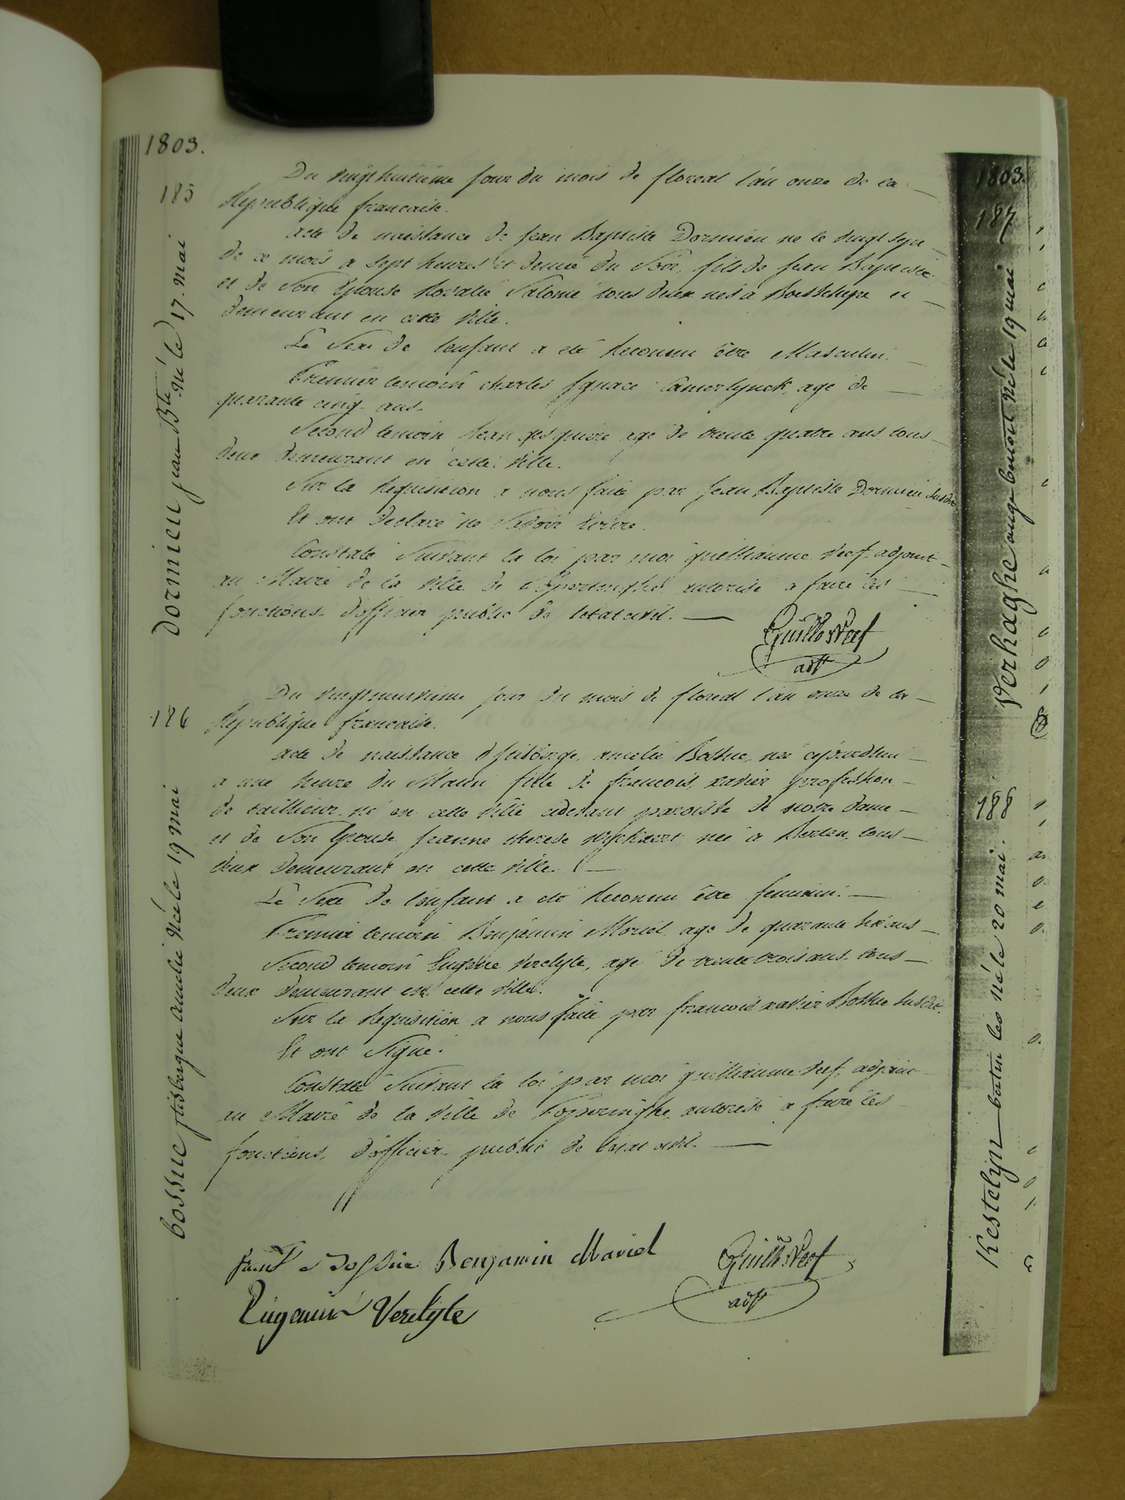 1803.
185
dornieu jean Bte né le 17. mai
Du vingthuitieme jour du mois de floreal l'an onze de la
Republique francaise.
acte de naissance de Jean Baptiste Dornieu né le vingt sept
de ce mois a sept heures et demie du Soir, fils de Jean Baptiste
et de Son Epouse Rosalie Salome tous deux nés a et
demeurant en cette Ville.
Le Sexe de l'enfant a été Reconnu être Masculin.
Premier temoin charles Ignace agé de
quarante cinq ans.
Second temoin Jean agé de trente quatre ans tous
deux demeurant en cette Ville.
Sur la Requisition a nous faite par Jean Baptiste Dornieu Susdit
Et ont declaré ne Savoir Ecrire.
Constaté Suivant la loi par moi guilliaume Verf adjoint
au Maire de la Ville de Poperinghe autorisé a faire les
fonctions d'officier public de l'etat civil.
Guilld Verf
adjt
186
bossue amelie née le 19 mai
Du vingtneuvieme jour du mois de floreal l'an onze de la
Republique francaise.
acte de naissance de amelie Bossue, née
a une heure du Matin fille de francois xavier profession
de taillieur né en cette Ville cidevant paroisse de notre dame
et de Son Epouse Jeanne therese née a tous
deux demeurant en cette Ville.
Le Sexe de l'enfant a été Reconnu être feminin.
Premier temoin Benjamin Moriel agé de quarante ans
Second temoin Eugenie Verelyle, agé de trente trois ans tous
deux demeurant en cette Ville.
Sur la Requisition a nous faite par francois xavier Bossue Susdit.
Et ont Signé.
Constaté Suivant la loi par moi guilliaume Verf adjoint
au Maire de la Ville de Poperinghe autorisé a faire les
fonctions d'officier public de l'etat civil.
Benjamin Moriel
Verelyle
Guilld Verf
adjt
1803.
187
Verhaghe ange benoit né le 19 mai
188
Kestelyn né le 20 mai.